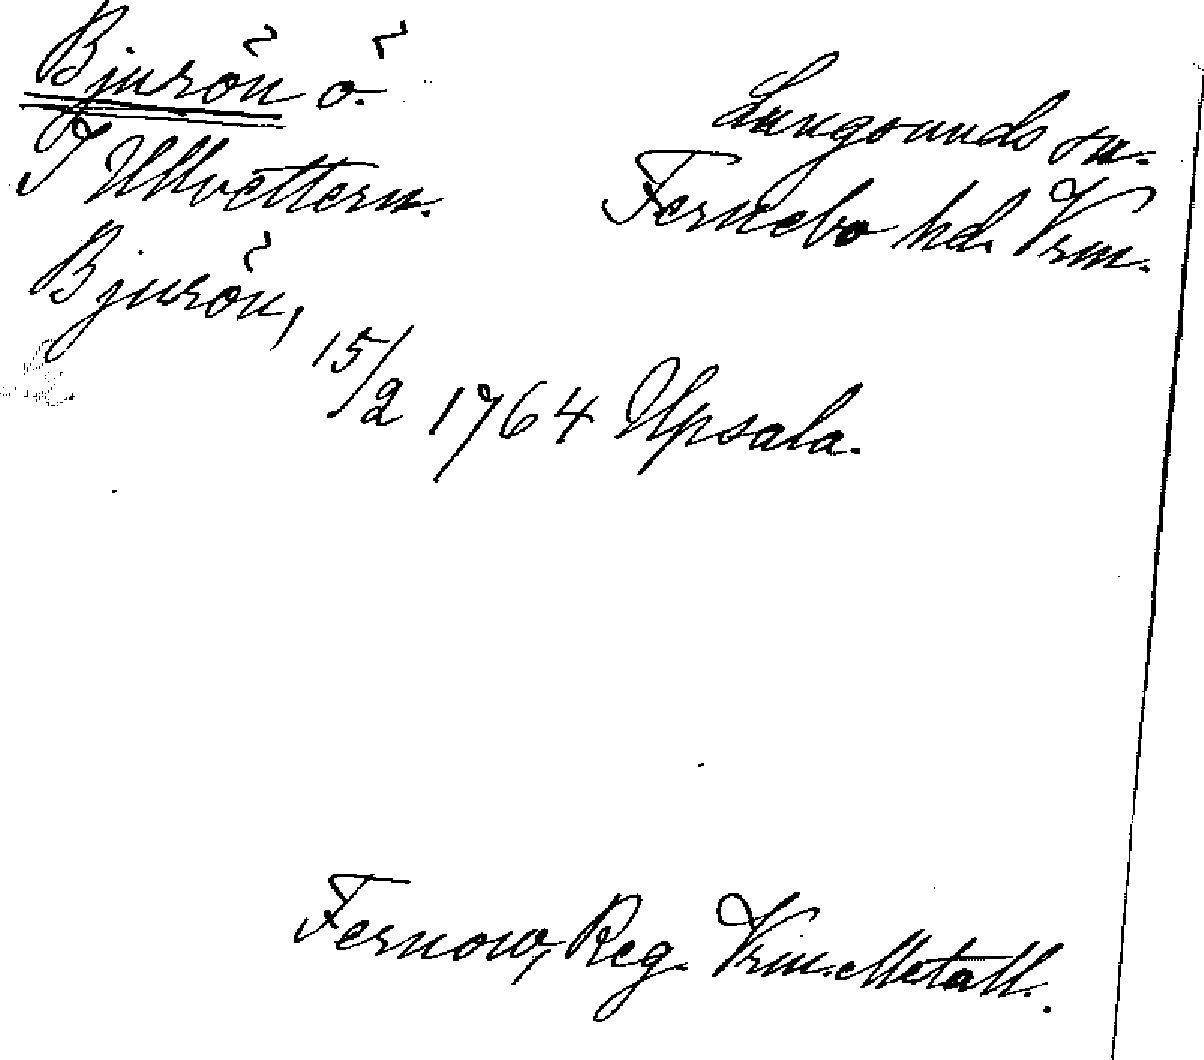 Bjurön ö.
Lungsunds sn.
I Ullvettern.
Fernebo hd. Vrm.
Bjurön,
15/2 1764 Upsala.
Fernow, Reg. Vrm. Metall.